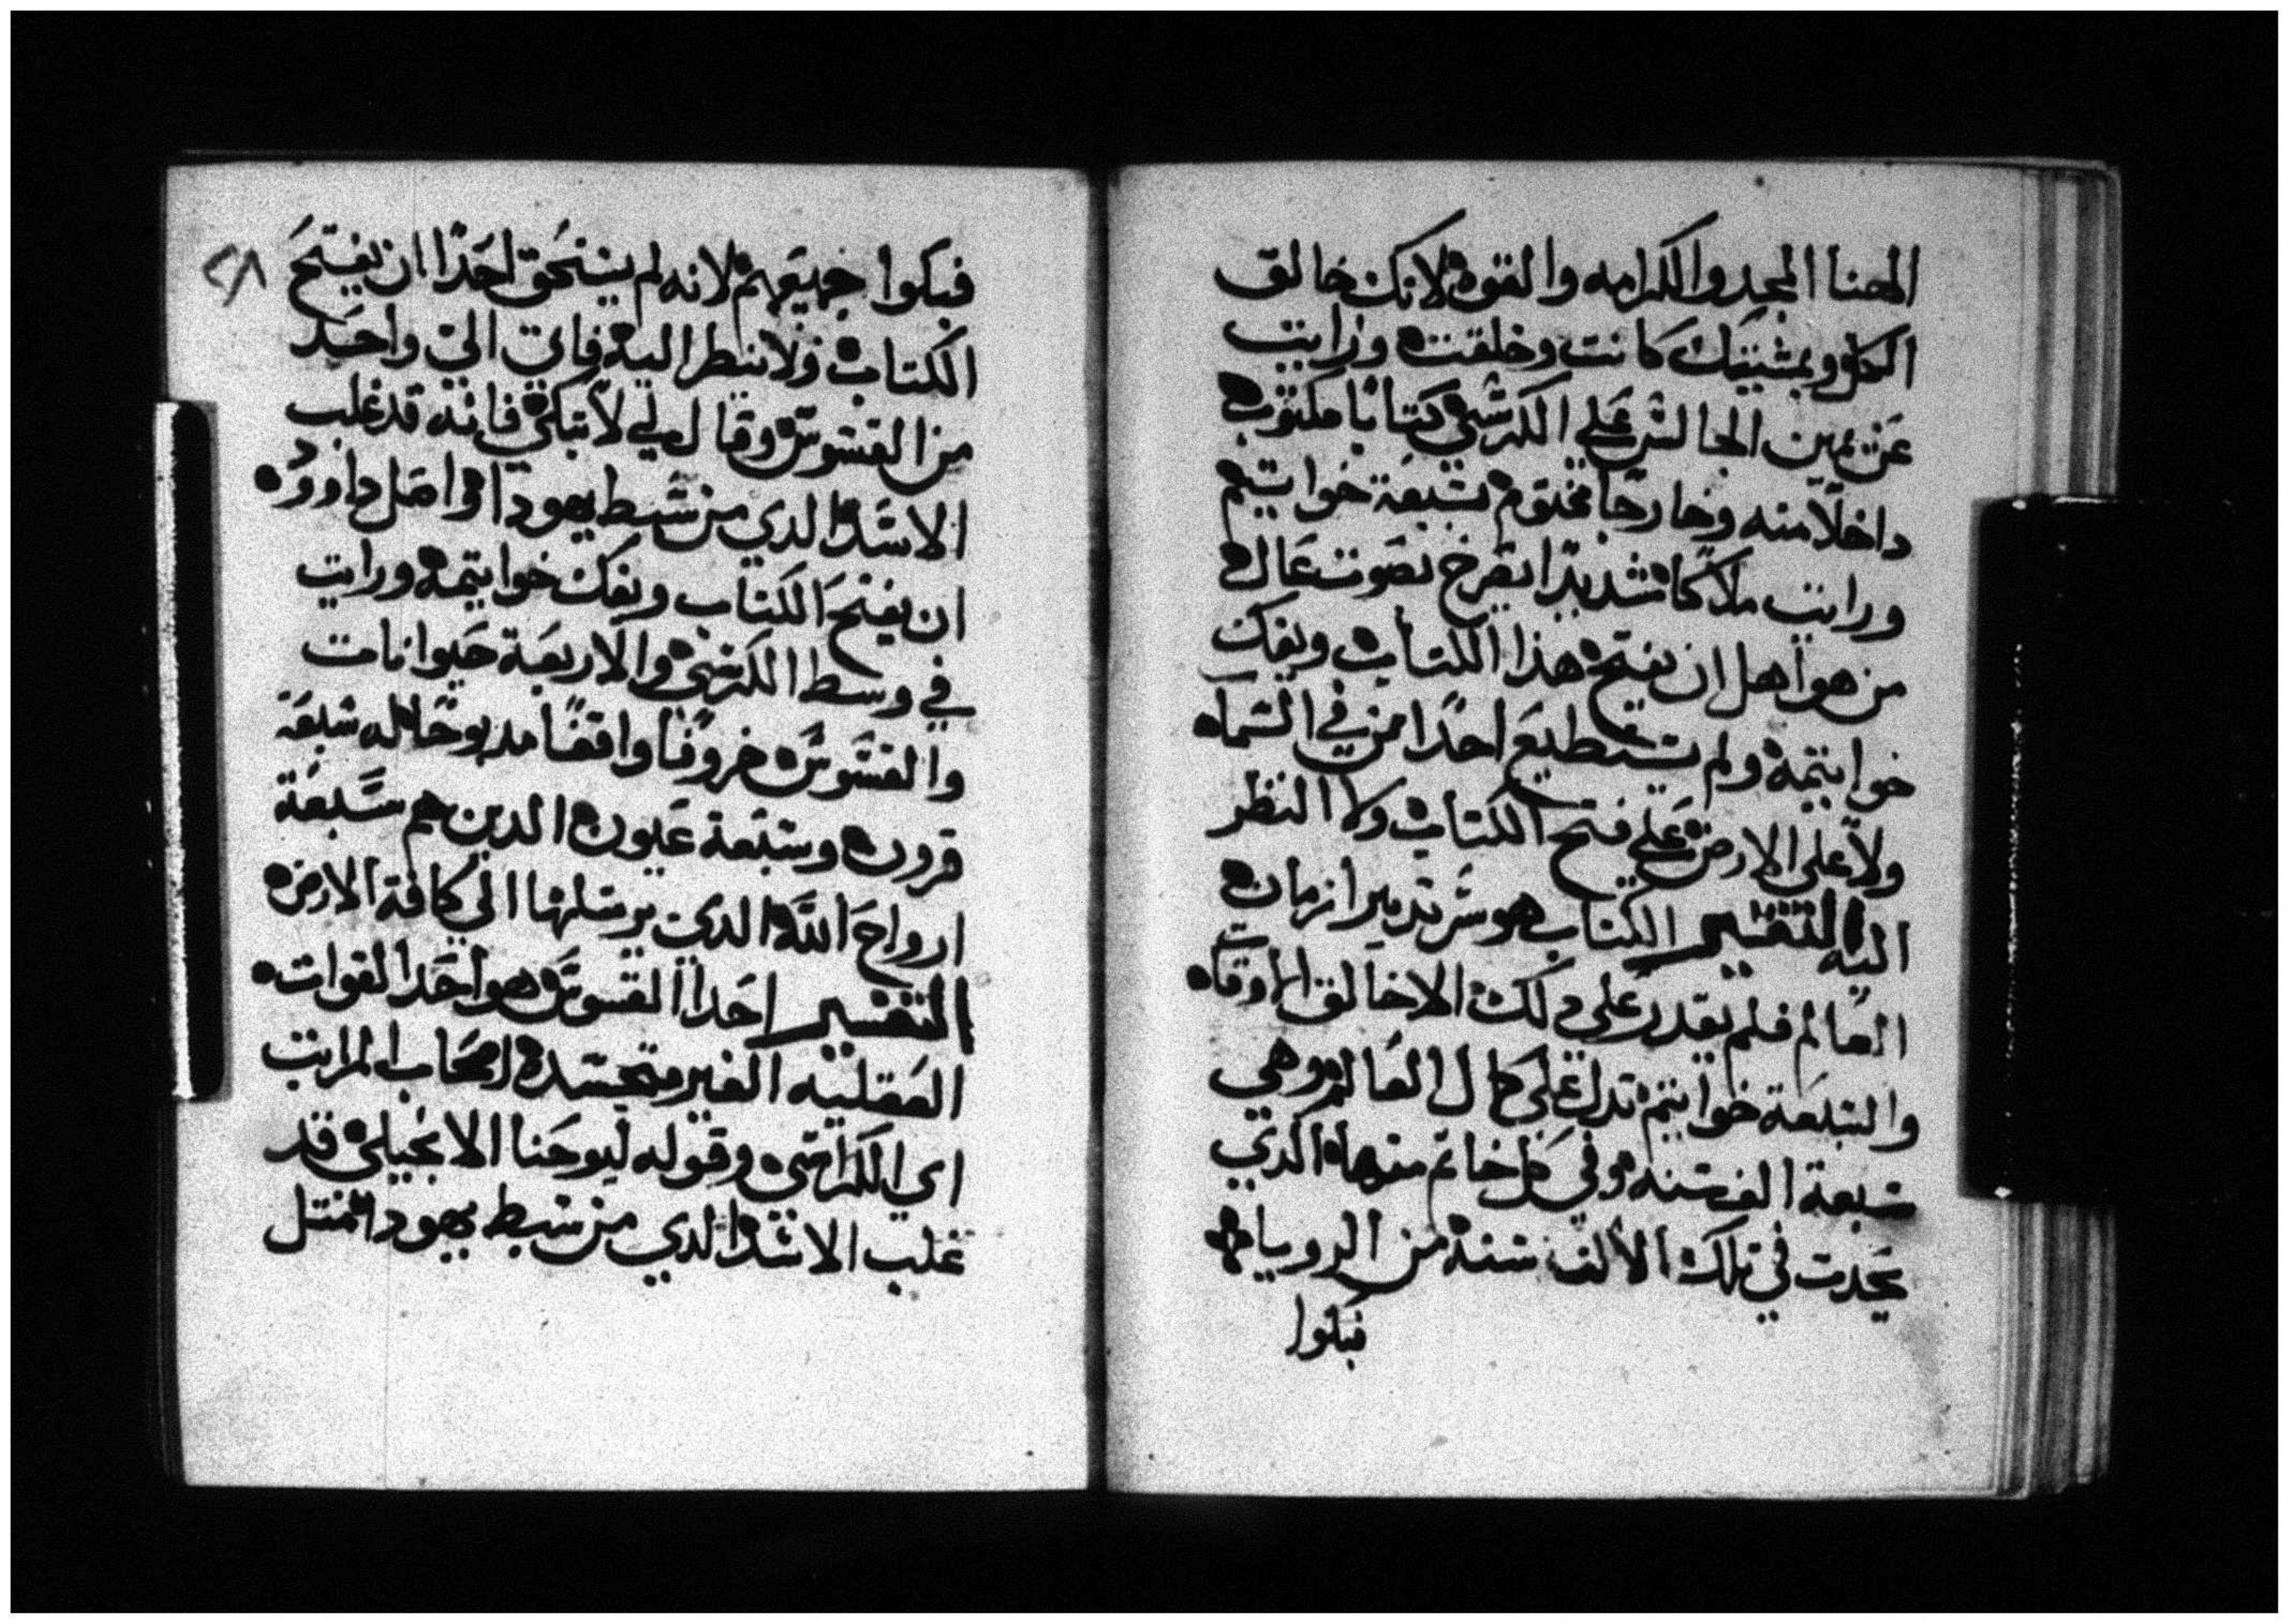 الاهنا المجد والكرامه والقوه لانك خالق
الكل وبمشيتك كانت وخلقت ورايت
عن يمين الجالس على الكرسي كتابا مكتوب
داخلا منه وخارجا مختوم بسبعة خواتيم
ورايت ملاكا شديدا يصرخ بصوت عال
من هو اهل ان يفتح هذا الكتاب ويفك
خواتيمه ولم يستطيع احدا من في السما
ولا على الارض على فتح الكتاب ولا النظر
اليه التفسير الكتاب هو سر تدبير ازمان
العالم فلم يقدر على دلك الا خالق الاوقات
والسبعة خواتيم تدل على كمال العالم وهي
سبعة الف سنه وفي كل خاتم منها الدي
يحدت في تلك الالف سنة من الرويا
فبكوا
٢٨
فبكوا جميعهم لانه لم يستحق احدا ان يفتح
الكتاب ولا ينظر اليه فاتى الي واحد
من القسوس وقال لي لا تبكي فانه قد غلب
الاسد الدي من سبط يهودا واصل داوود
ان يفتح الكتاب ويفك خواتيمه ورايت
في وسط الكرسي والاربعة حيوانات
والقسوس خروفا واقفا مدبوحا له سبعة
قرون وسبعة عيون الدين هم سبعة
ارواح الله الدي يرسلها الى كافة الارض
التفسير احدا القسوس هو احدا القوات
العقليه الغير متجسده اصحاب المراتب
اي الكراسي وقوله ليوحنا الانجيلي قد
غلب الاسد الدي من سبط يهودا متل